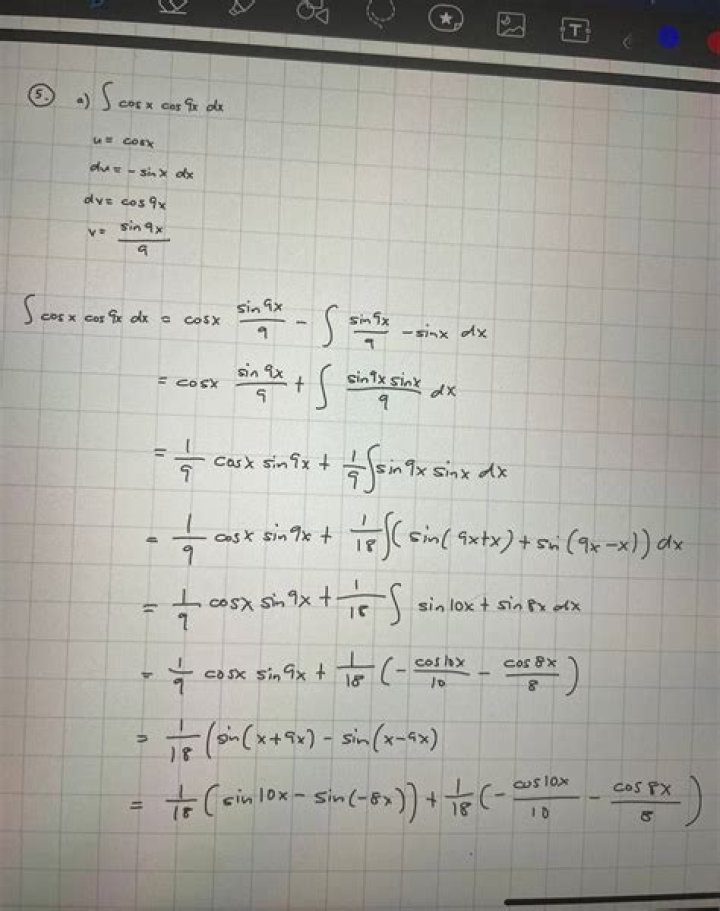 5. a) ∫ cos x cos 9x dx
u = cosx
du = - sin x dx
dv = cos 9x
v = sin 9x / 9
∫ cos x cos 9x dx = cosx sin9x / 9 - ∫ sin9x / 9 - sinx dx
= cosx sin 9x / 9 + ∫ sin9x sinx / 9 dx
= 1/9 cosx sin9x + 1/9 ∫ sin9x sinx dx
= 1/9 cosx sin9x + 1/18 ∫( sin( 9x+x) + sin (9x-x)) dx
= 1/9 cosx sin9x + 1/18 ∫ sin10x + sin8x dx
= 1/9 cosx sin9x + 1/18 (- cos10x / 10 - cos 8x / 8 )
= 1/18 (sin(x+9x) - sin(x-9x)
= 1/18 (sin10x - sin(-8x)) + 1/18 (- cos10x / 10 - cos 8x / 8 )
T